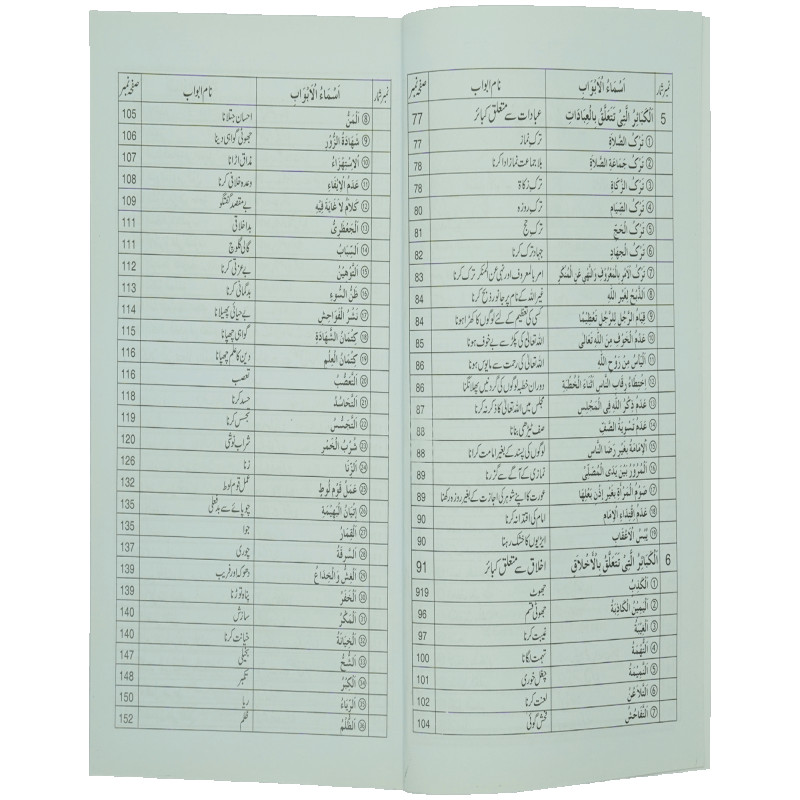 نمبر شمار اَسْمَاءُ الْاَبْوَابِ نام ابواب صفحہ نمبر
5 اَلْكَبَائِرُ الَّتِىْ تَتَعَلَّقُ بِالْعِبَادَاتِ عبادات سے متعلق کبائر 77
① تَرْكُ الصَّلَاةِ ترک نماز 77
② تَرْكُ جَمَاعَةِ الصَّلَاةِ بلا جماعت نماز ادا کرنا 78
③ تَرْكُ الزَّكَاةِ ترک زکاۃ 78
④ تَرْكُ الصِّيَامِ ترک روزہ 80
⑤ تَرْكُ الْحَجِّ ترک حج 81
⑥ تَرْكُ الْجِهَادِ جہاد ترک کرنا 82
⑦ تَرْكُ الْاَمْرِ بِالْمَعْرُوْفِ وَالنَّهْىِ عَنِ الْمُنْكَرِ امر بالمعروف اور نہی عن المنکر ترک کرنا 83
⑧ اَلذَّبْحُ لِغَيْرِ اللّٰهِ غیر اللہ کے نام پر جانور ذبح کرنا 84
⑨ قِيَامُ الرَّجُلِ لِلرَّجُلِ تَعْظِيْمًا کسی کی تعظیم کے لئے لوگوں کا کھڑا ہونا 84
⑩ عَدَمُ الْخَوْفِ مِنَ اللّٰهِ تَعَالٰى اللہ تعالیٰ کی پکڑ سے بے خوف ہونا 85
⑪ اَلْيَاْسُ مِنْ رَوْحِ اللّٰهِ اللہ تعالیٰ کی رحمت سے مایوس ہونا 86
⑫ اِخْتِطَاءُ رِقَابِ النَّاسِ اَثْنَاءَ الْخُطْبَةِ دوران خطبہ لوگوں کی گردنیں پھلانگنا 86
⑬ عَدَمُ ذِكْرِ اللّٰهِ فِى الْمَجْلِسِ مجلس میں اللہ تعالیٰ کا ذکر نہ کرنا 87
⑭ عَدَمُ تَسْوِيَةِ الصَّفِّ صف ٹیڑھی بنانا 88
⑮ اَلْاِمَامَةُ بِغَيْرِ رِضَا النَّاسِ لوگوں کی پسند کے بغیر امامت کرانا 88
⑯ اَلْمُرُوْرُ بَيْنَ يَدَىِ الْمُصَلِّىْ نمازی کے آگے سے گزرنا 89
⑰ صَوْمُ الْمَرْاَةِ بِغَيْرِ اِذْنِ بَعْلِهَا عورت کا اپنے شوہر کی اجازت کے بغیر روزہ رکھنا 89
⑱ عَدَمُ اِقْتِدَاءِ الْاِمَامِ امام کی اقتدا نہ کرنا 90
⑲ يُبْسُ الْاَعْقَابِ ایڑیوں کا خشک رہنا 90
6 اَلْكَبَائِرُ الَّتِىْ تَتَعَلَّقُ بِالْاَخْلَاقِ اخلاق سے متعلق کبائر 91
① اَلْكَذْبُ جھوٹ 919
② اَلْيَمِيْنُ الْكَاذِبَةُ جھوٹی قسم 96
③ اَلْغِيْبَةُ غیبت کرنا 97
④ اَلتُّهْمَةُ تہمت لگانا 100
⑤ اَلنَّمِيْمَةُ چغل خوری 101
⑥ اَلتَّلَاعُنُ لعنت کرنا 102
⑦ اَلتَّفَاحُشُ فحش گوئی 104
نمبر شمار اَسْمَاءُ الْاَبْوَابِ نام ابواب صفحہ نمبر
⑧ اَلْمَنُّ احسان جتلانا 105
⑨ شَهَادَةُ الزُّوْرِ جھوٹی گواہی دینا 106
⑩ اَلْاِسْتِهْزَاءُ مذاق اڑانا 107
⑪ عَدَمُ الْاِيْفَاءِ وعدہ خلافی کرنا 108
⑫ كَلَامٌ لَا غَايَةَ فِيْهِ بے مقصد گفتگو 109
⑬ اَلْجَعْظَرِىُّ بد اخلاقی 111
⑭ اَلسِّبَابُ گالی گلوچ 111
⑮ اَلتَّوْهِيْنُ بے عزتی کرنا 112
⑯ ظَنُّ السُّوْءِ بدگمانی کرنا 113
⑰ نَشْرُ الْفَوَاحِشِ بے حیائی پھیلانا 114
⑱ كِتْمَانُ الشَّهَادَةِ گواہی چھپانا 115
⑲ كِتْمَانُ الْعِلْمِ دین کا علم چھپانا 116
⑳ اَلتَّعَصُّبُ تعصب 116
㉑ اَلتَّحَاسُدُ حسد کرنا 118
㉒ اَلتَّجَسُّسُ تجسس کرنا 119
㉓ شُرْبُ الْخَمْرِ شراب نوشی 120
㉔ اَلزِّنَا زنا 126
㉕ عَمَلُ قَوْمِ لُوْطٍ عمل قوم لوط 132
㉖ اِتْيَانُ الْبَهِيْمَةِ چوپائے سے بدفعلی 135
㉗ اَلْقِمَارُ جوا 135
㉘ اَلسَّرِقَةُ چوری 137
㉙ اَلْغِشُّ وَالْخِدَاعُ دھوکہ اور فریب 139
㉚ اَلْخَفَرُ پناہ توڑنا 139
㉛ اَلْمَكْرُ سازش 140
㉜ اَلْخِيَانَةُ خیانت کرنا 140
㉝ اَلشُّحُّ بخیلی 147
㉞ اَلْكِبْرُ تکبر 148
㉟ اَلرِّيَاءُ ریا 150
㊱ اَلظُّلْمُ ظلم 152